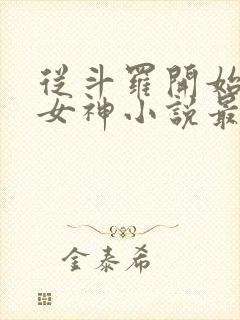 從斗羅開始
女神小說最
金泰希